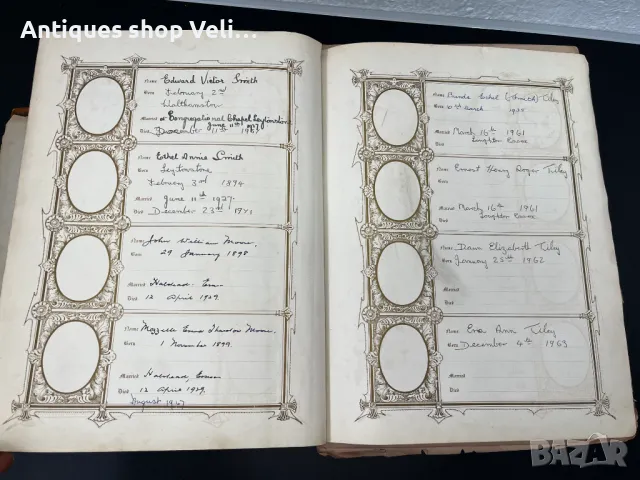 Antiques shop Veli...
Name Edward Victor Smith
Born February 2nd
Walthamstow
Married at Congregational Chapel Leytonstone
June 11th 1927
Died December 11th
Name Ethel Annie Smith
Born Leytonstone
February 3rd 1894
Married June 11th 1927.
Died December 23rd 1971
Name John William Moore.
Born 29 January 1898
Married Halstead, Essex
Died 12 April 1929.
Name Moore.
Born 1 November 1899.
Married Halstead, Essex
Died 12 April 1929.
August 1967
Name (Smith) Tiley
Born March
Married March 16th 1961
Died Loughton Essex
Name Ernest Henry Roger Tiley
Born
Married March 16th 1961
Died Loughton Essex
Name Dawn Elizabeth Tiley
Born January 25th 1962
Married
Died
Name Ann Tiley
Born December 4th 1963
Married
Died
BAZAR